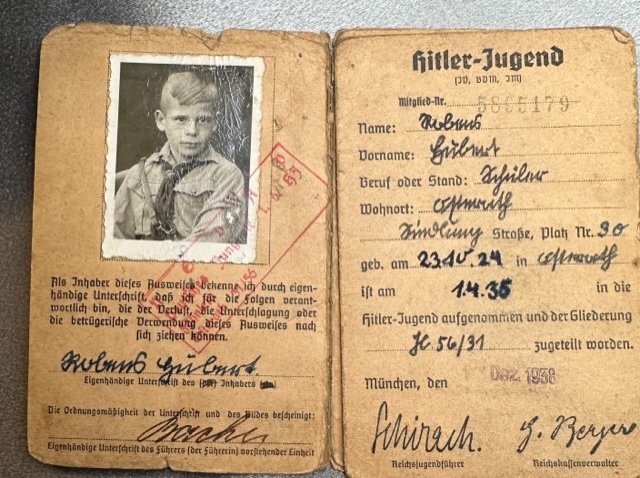 Als Inhaber dieses Ausweises bekenne ich durch eigen-
händige Unterschrift, daß ich für die Folgen verant-
wortlich bin, die der Verlust, die Unterschlagung oder
die betrügerische Verwendung dieses Ausweises nach
sich ziehen können.
Robens Hubert
Eigenhändige Unterschrift des Inhabers
Die Ordnungsmäßigkeit der Unterschrift und des Bildes bescheinigt:
Eigenhändige Unterschrift des Führers (der Führerin) vorstehender Einheit
Hitler-Jugend
(JV, BDM, JM)
Mitglied-Nr. 5895179
Name: Robens
Vorname: Hubert
Beruf oder Stand: Schüler
Wohnort: Osterath
Siedlung Straße, Platz Nr. 30
geb. am 23.IV.24 in Osterath
ist am 1.4.35 in die
Hitler-Jugend aufgenommen und der Gliederung
56/31 zugeteilt worden.
München, den 1 Dez. 1938
Schirach. G. Berger
Reichsjugendführer Reichskassenverwalter